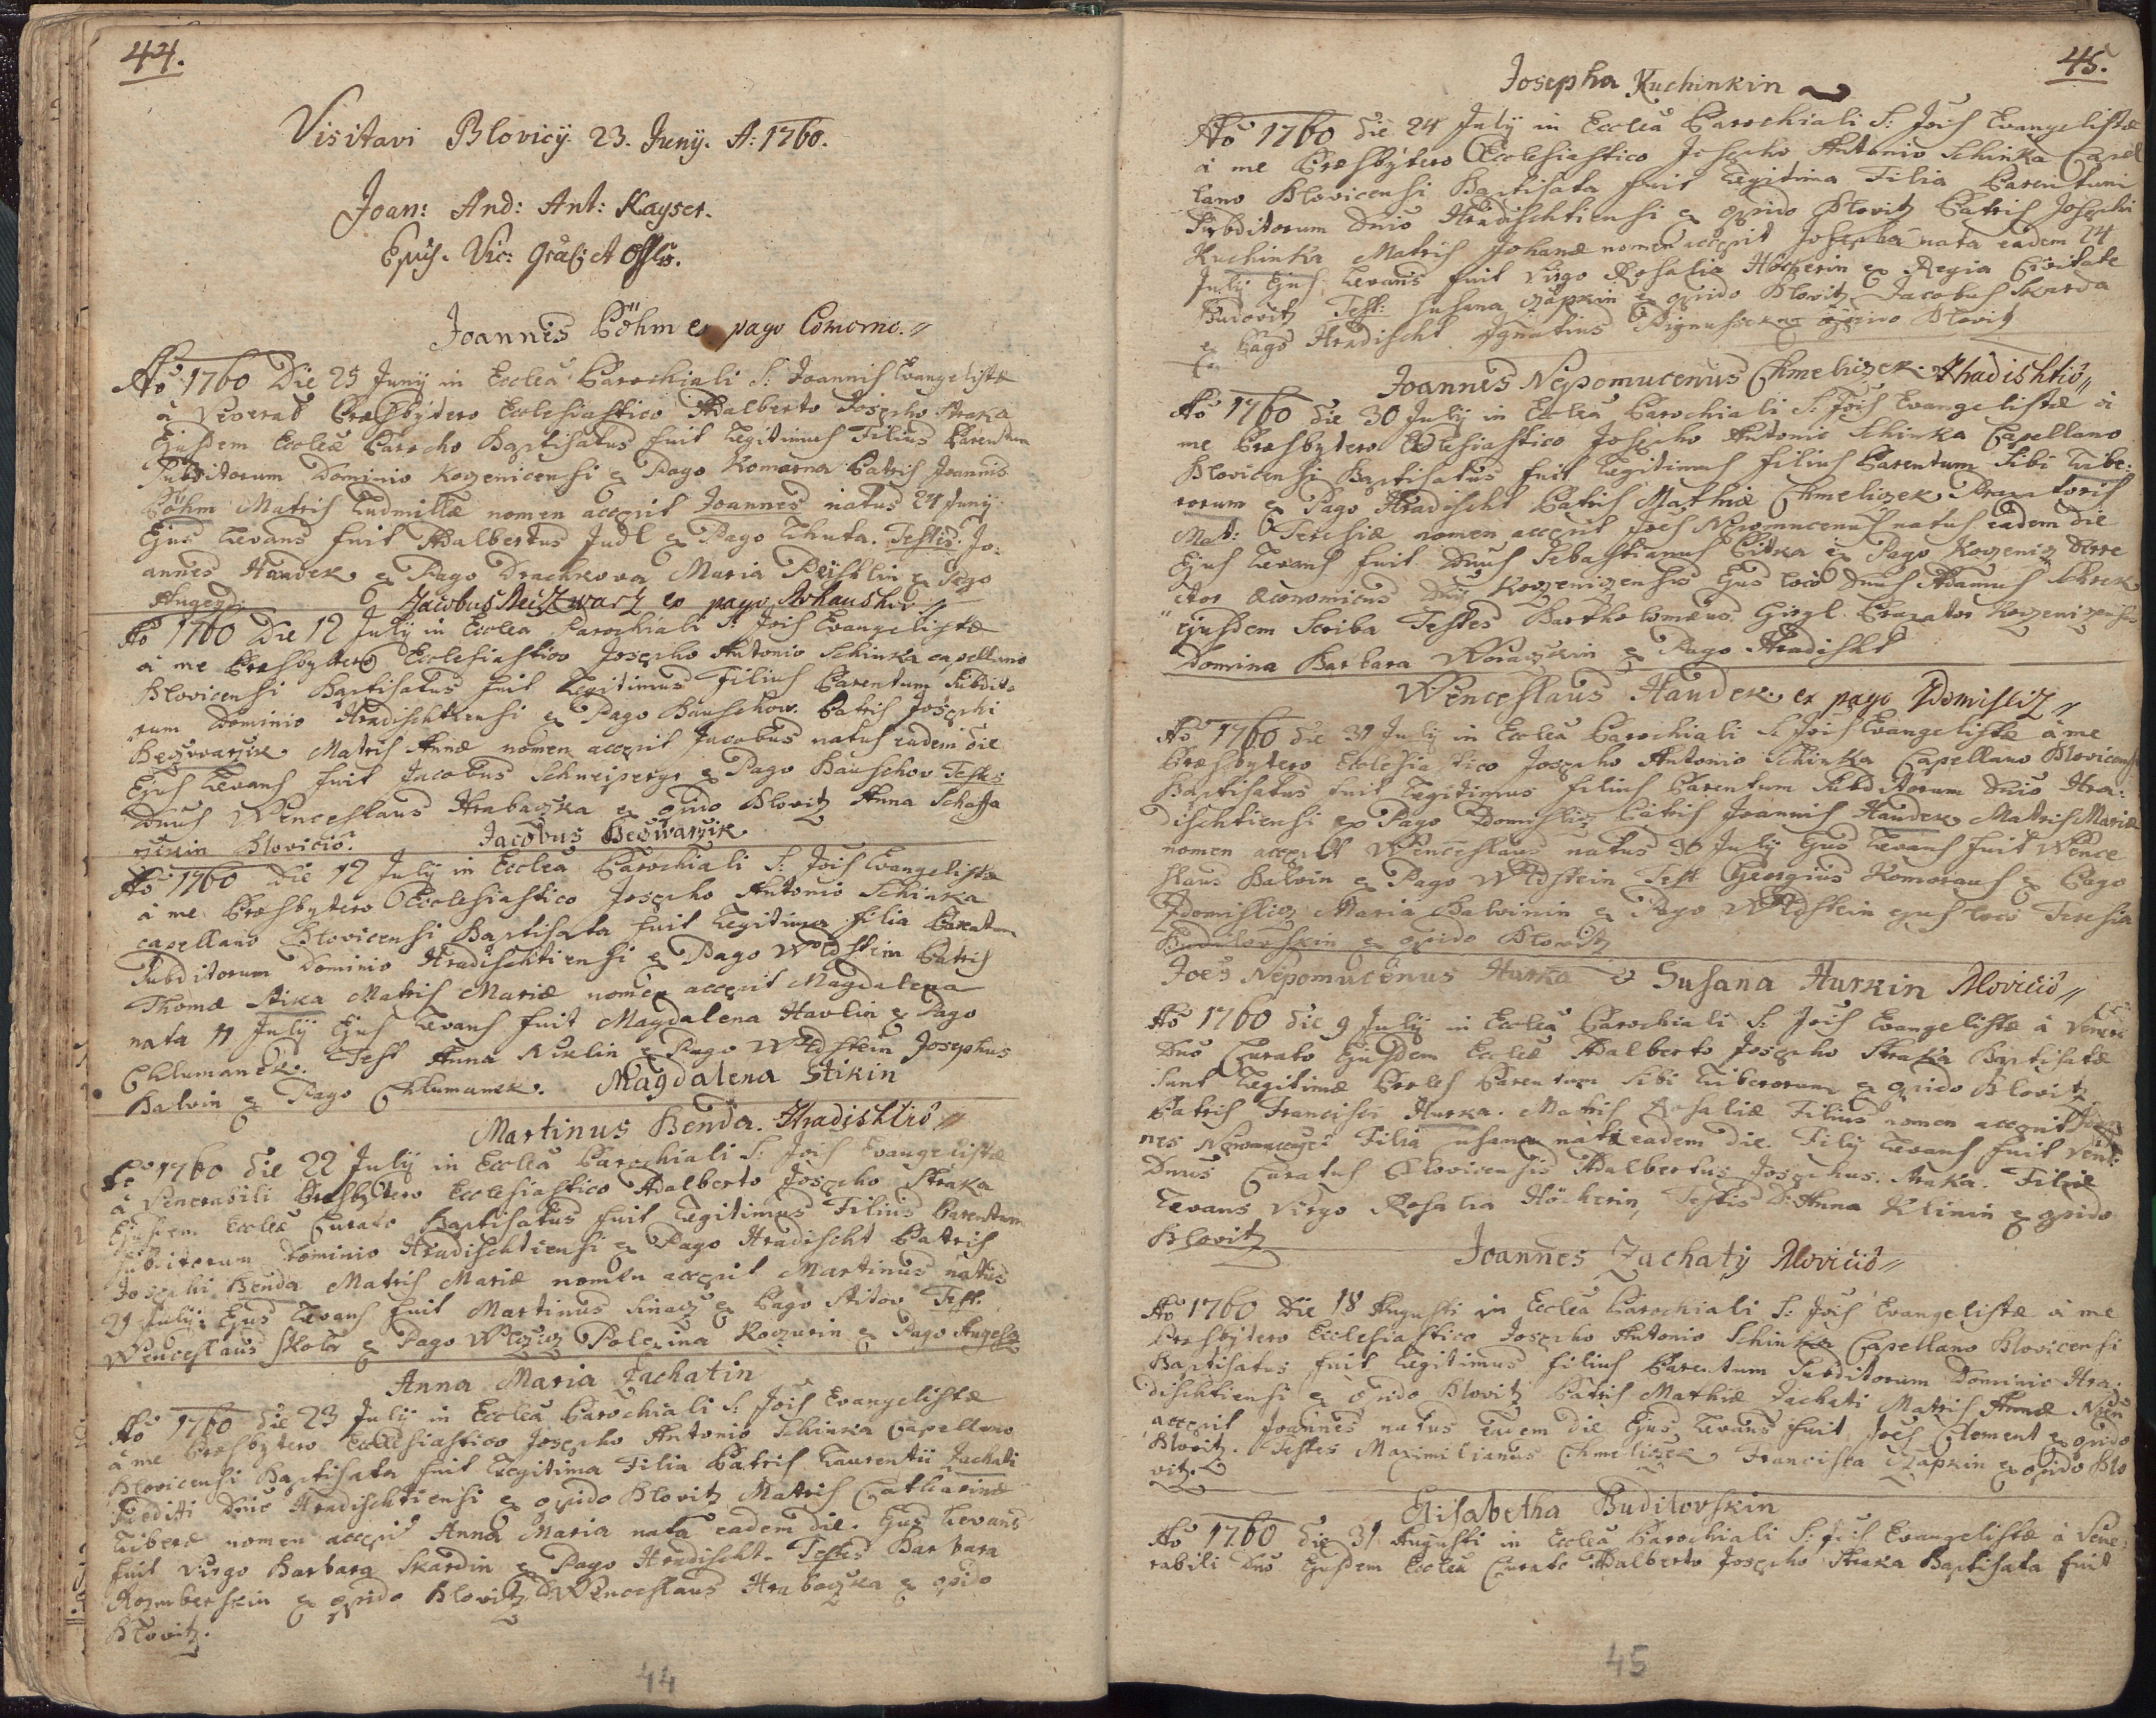 44.
Visitavi Blovicÿ. 23. Junÿ. A: 1760.
Joan: And: Ant: Kayser.
Epūs. Vic:
Joannes Böhm ex pago Comorno.
Ao 1760 Die 25 Junÿ in Eccleā Parochiali S: Joannis Evangelistæ
à Venerab Præsbÿtero Ecclesiastico Adalberto Josepho Straka
Ejusdem Eccleæ Parocho Baptisatus fuit Legitimus Filius Parentum
Subditorum Dominio Kozenicensi ex Pago Komorna Patris Joannis
Böhm Matris Ludmillæ nomen accepit Joannes natus 24 Junÿ
Ejus Levans fuit Adalbertus Judl ex Pago Lhuta. Testes: Jo:
annes Handek ex Pago Drachkova Maria ex Pago
Angezd.
Jacobus ex pago
Ao 1760 Die 12 Julÿ in Eccleā Parochiali S: Jois Evangelistæ
à me Præsbÿtero Ecclesiastico Josepho Antonio Schinka capellano
Blovicensi Baptisatus fuit Legitimus Filius Parentum Subdito
rum Dominio Hradischtiensi ex Pago Bauschow. Patris Josephi
Bezwarzik Matris Annæ nomen accepit Jacobus natus eadem die
Ejus Levans fuit Jacobus ex Pago Bauschov Testes
Dnus Wenceslaus Hrabaczka ex opido Blovitz Anna Schaffa
rzkin Blovicio.
Jacobus Bezwarzik
Ao 1760 die 12 Julÿ in Eccleā Parochiali S: Jois Evangelistæ
à me Præsbytero Ecclesiastico Josepho Antonio Schinka
capellano Blovicensi Baptisata fuit Legitima filia Parentum
Subditorum Dominio Hradischtiensi ex Pago Wldstein Patris
Thomæ Stika Matris Mariæ nomen accepit Magdalena
nata 11 Julÿ Ejus Levans fuit Magdalena Havlin ex Pago
Chlumanek. Test Anna ex Pago Wldstein Josephus
Balvin ex Pago Chlumanek.
Magdalena Stikin
Martinus Benda. Hradishtio
Ao 1760 die 22 Julÿ in Eccleā Parochiali S: Jois Evangelistæ
à Venerabili Præsbÿtero Ecclesiastico Adalberto Josepho Straka
Ejusdem Eccleæ Curato Baptisatus fuit Legitimus Filius Parentum
Subditorum Dominio Hradischtiensi ex Pago Hradischt Patris
Josephi Benda Matris Mariæ nomen accepit Martinus natus
21 Julÿ: Ejus Levans fuit Martinus ex Pago Stitov Test.
Wenceslaus ex Pago Polexina Kozurin ex Pago Angezd
Anna Maria Zachatin
Ao 1760 die 23 Julÿ in Eccleā Parochiali S: Jois Evangelistæ
à me Præsbytero Ecclesiastico Josepho Antonio Schinka Capellano
Blovicensi Baptisata fuit Legitima Filia Patris Laurentii Zachati
Subditi Dnio Hradischtiensi ex opido Blovitz Matris Catharinæ
Liberæ nomen accepit Anna Maria nata eadem die. Ejus Levans
fuit Virgo Barbara Skardin ex Pago Hradischt. Testes Barbara
Rozmberskin ex opido Blovitz D Wenceslaus Hrabaczka ex opido
Blovitz.
44
45.
Josepha Kuchinkin
Ao 1760 die 24 Julÿ in Eccleā Parochiali S: Jois Evangelistæ
à me Præsbÿtero Ecclesiastico Josepho Antonio Schinka Capel
lano Blovicensi Baptisata fuit Legitima Filia Parentum
Subditorum Dnio Hradischtiensi ex opido Blovitz Patris Josephi
Kuchinka Matris Johanæ nomen accepit Josepha nata eadem 24
Julÿ Ejus Levans fuit Virgo Rosalia Höcherin ex Regia Civitate
Budovitz Test: Susana Czapkin ex opido Blovitz Jacobus Skarda
ex Pago Hradischt Ignatius opido Blovitz
Joannes Nepomucenus Chmeliczek. Hradishtio
Ao 1760 die 30 Julÿ in Eccleā Parochiali S: Jois Evangelistæ à
me Præsbytero Ecclesiastico Josepho Antonio Schinka Capellano
Blovicensi Baptisatus fuit Legitimus filius Parentum Sibi Libe:
rorum ex Pago Hradischt Patris Mathiæ Chmeliczek
Mat: Teresiæ nomen accepit Joes Nepomucenus natus eadem die
Ejus Levans fuit Dnus Sebastianus Pitka ex Pago Kozenicz Dire
ctor œconomicus Kozenizensis Ejus loco Dnus Adamus Schrek
ejusdem Scriba Testes Bartholomæus Girgl Kozenizensis
Domina Barbara ex Pago Hradischt
Wenceslaus Handek ex pago Zdomislicz
Ao 1760 die 31 Julÿ in Eccleā Parochiali S. Jois Evangelistæ à me
Præsbytero Ecclesiastico Josepho Antonio Schinka Capellano Blovicensi
Baptisatus fuit Legitimus filius Parentum Subditorum Dnio Hra:
dischtiensi ex Pago Zdomislicz Patris Joannis Handek Matris Mariæ
nomen accepit Wenceslaus natus 30 Julÿ Ejus Levans fuit Wence
slaus Balvin ex Pago Wldstein Test Georgius Komoraus ex Pago
Zdomislicz Maria Balvinin ex Pago Wldstein ejus loco Teresia
Budilovskin ex opido Blovitz
Joes Nepomucenus Hurka & Susana Hurkin Blovicio
Ao 1760 die 9 Julÿ in Eccleā Parochiali S: Jois Evangelistæ à Venera
Dno Curato Ejusdem Eccleæ Adalberto Josepho Straka Baptisatæ
sunt Legitimæ Proles Parentum Sibi Liberorum ex opido Blovitz
Patris Francisci Hurka. Matris Rosaliæ Filius nomen accepit Joan
nes Nepomucenus Filia Susana nati eadem die. Filÿ Levans fuit Ven:
Dnus Curatus Blovicensis Adalbertus Josephus. Straka. Filiæ
Levans Virgo Rosalia Höcherin, Testis D: Anna Klinin ex opido
Blovitz
Joannes Zachatÿ Blovicio
Ao 1760 Die 18 Augusti in Eccleā Parochiali S: Jois Evangelistæ à me
Præsbÿtero Ecclesiastico Josepho Antonio Schinka Capellano Blovicensi
Baptisatus fuit Legitimus filius Parentum Subditorum Dominio Hra:
dischtiensi ex opido Blovitz Patris Mathiæ Zachati Matris Annæ Nom
accepit Joannes natus eadem die Ejus Levans fuit Joes Clement ex opido
Blovitz. Testes Maximilianus Chmeliczek Francisca Czapkin ex opido Blo
vitz.
Elisabetha Budilovskin
Ao 1760 die 31 Augusti in Eccleā Parochiali S: Jois Evangelistæ à Vene:
rabili Dno Ejusdem Eccleæ Curato Adalberto Josepho Straka Baptisata fuit
45